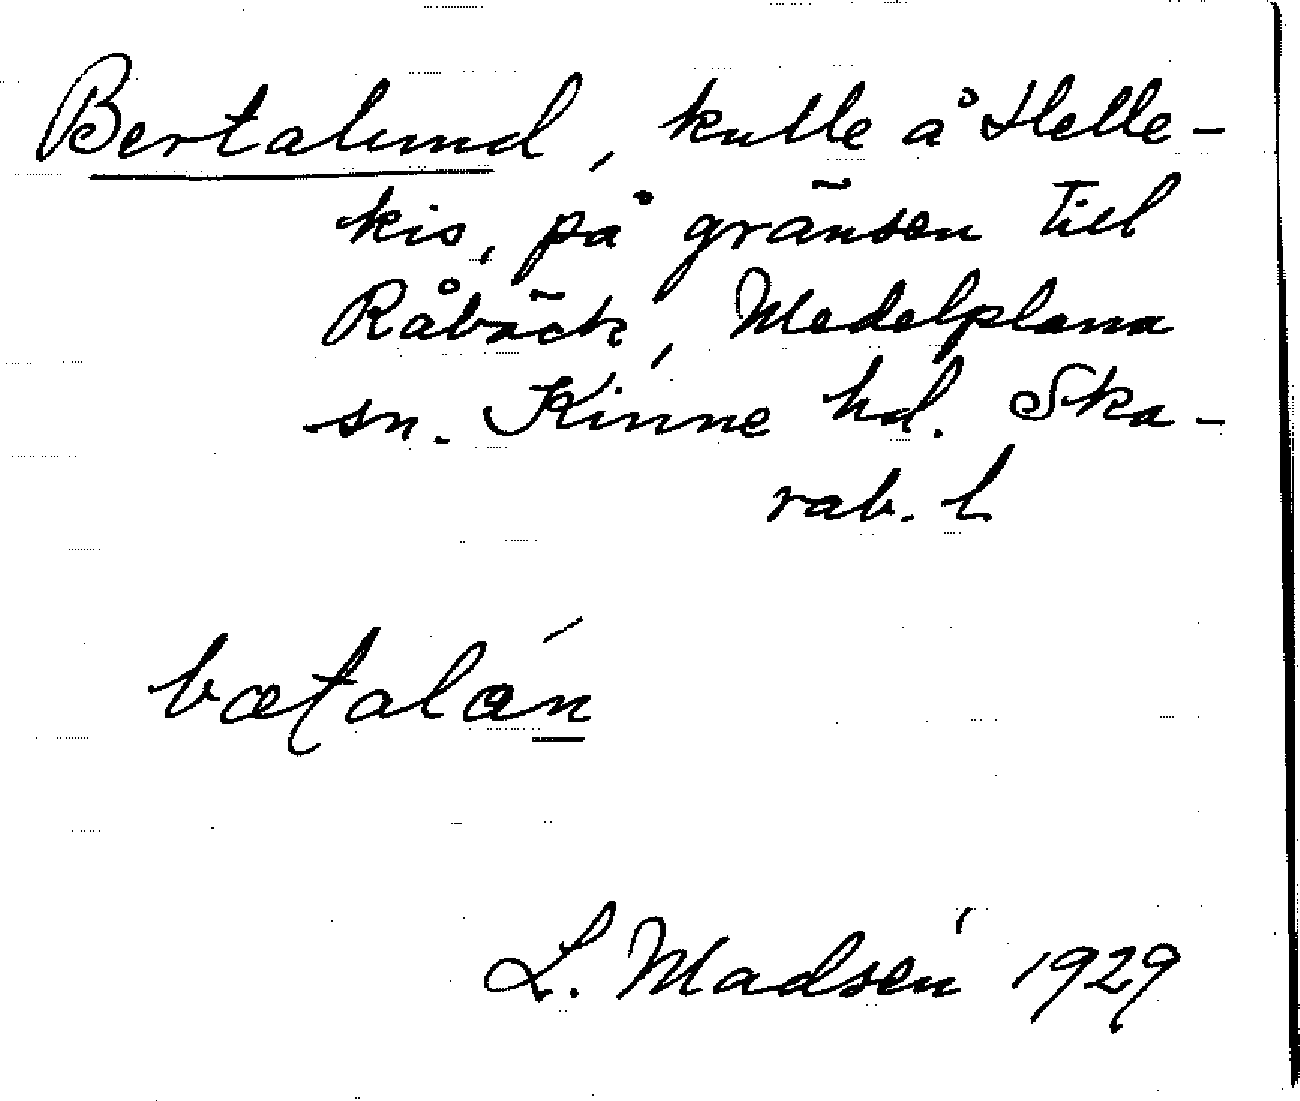 Bertalund, kulle å Helle-
kis, på gränsen till
Råbäck, Medelplana
sn. Kinne hd. Ska-
rab. l
L. Madsén 1929